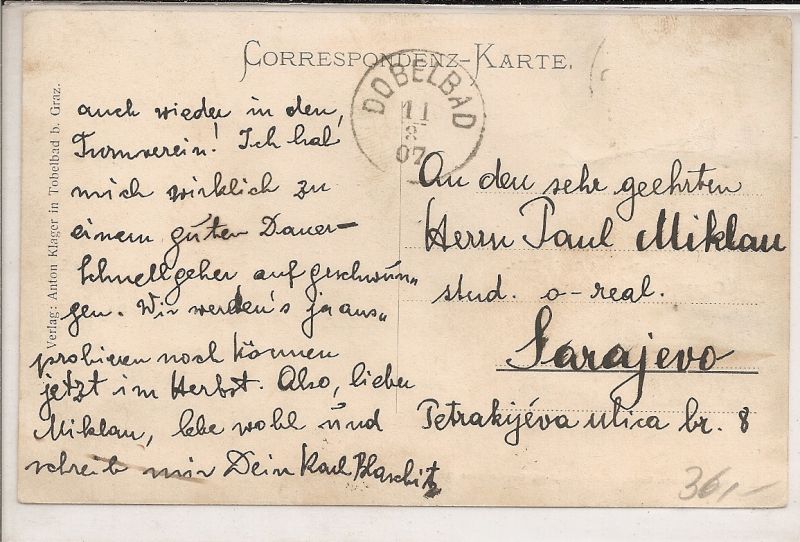 CORRESPONDENZ-KARTE.
DOBELBAD
11
8
07
Verlag: Anton Klager in Tobelbad b. Graz.
auch wieder in den,
Turnverein! Ich hab
mich wirklich zu
einem guten Dauer-
schnellgeher auf geschwun„
gen. Wir werden's ja aus„
probieren noch können
jetzt im Herbst. Also, lieber
Miklau, lebe wohl und
schreib mir Dein Karl Blaschitz
An den sehr geehrten
Herrn Paul Miklau
stud. o-real.
Sarajevo
Petrakijéva ulica br. 8
36,-